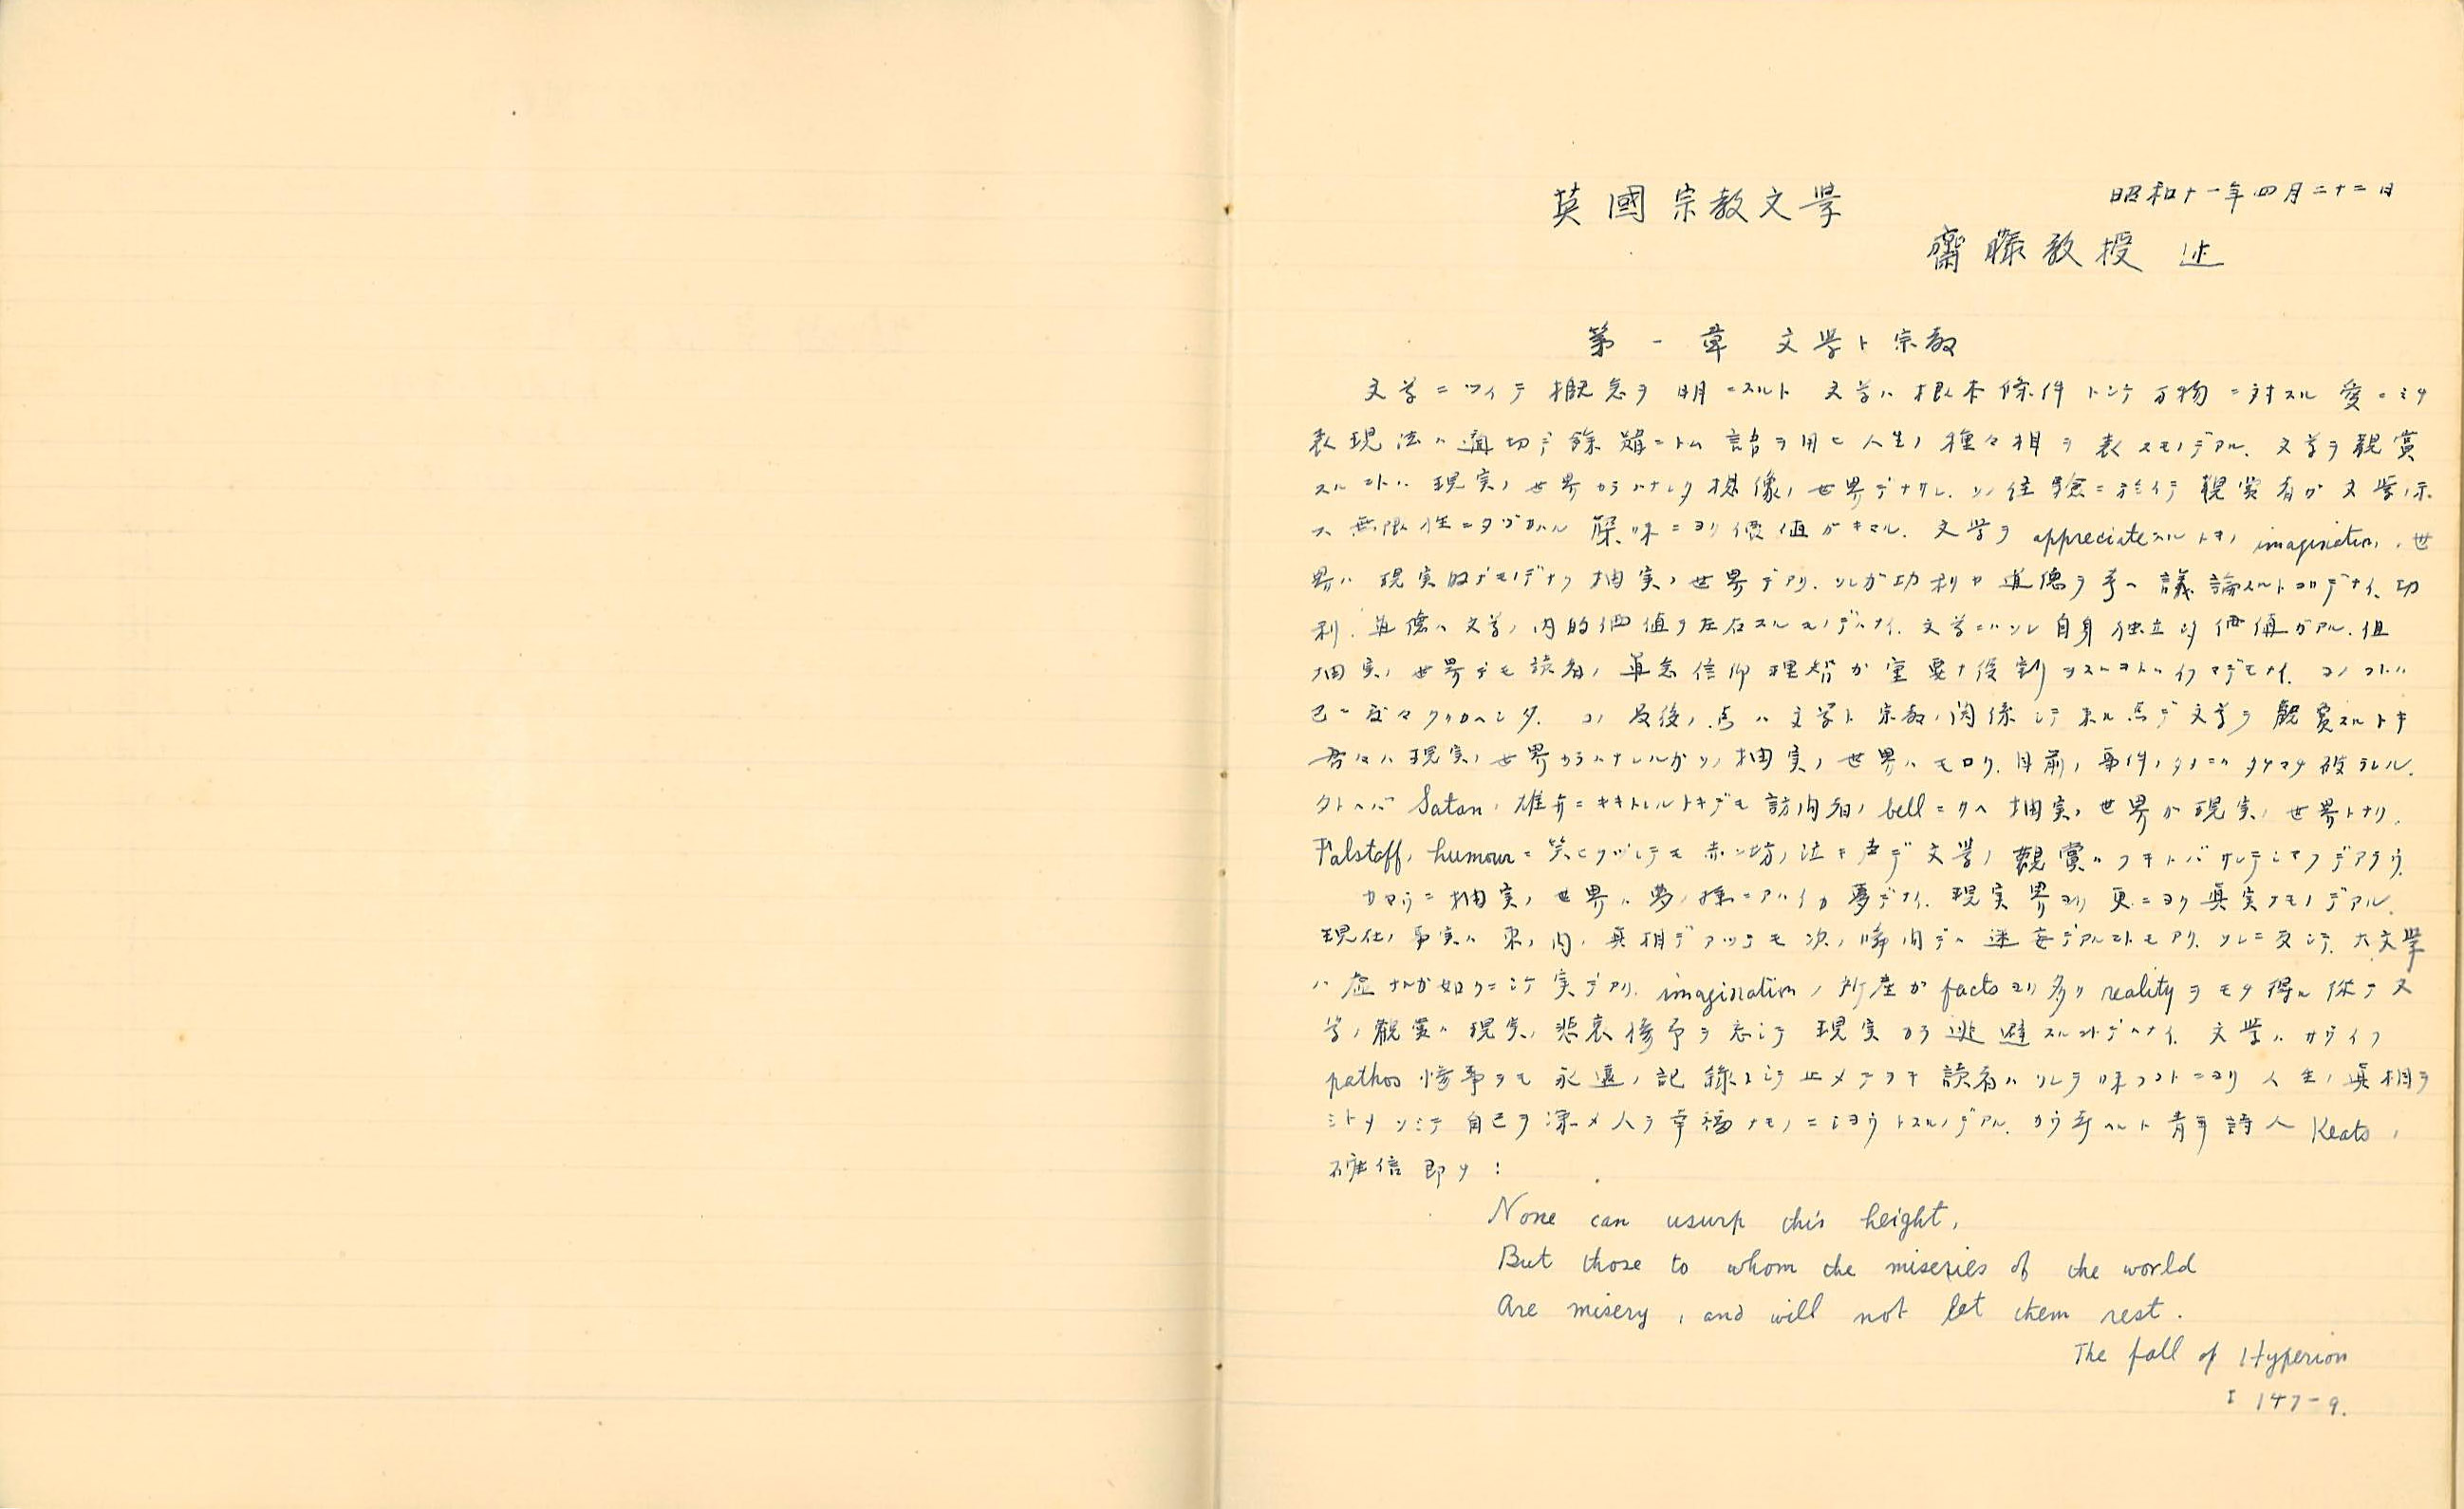 昭和十一年四月二十二日
英國宗教文學
齋藤教授 述
第一章 文学ト宗教
文学ニツイテ概念ヲ明ニスルト 文学ハ根本條件トシテ万物ニ対スル愛ニミチ
表現法ハ適切デ餘韻ニトム語ヲ用ヒ人生ノ種々相ヲ表スモノデアル. 文学ヲ観賞
スルコトハ現実ノ世界カラハナレタ想像ノ世界デナサレ. ソノ経験ニ於イテ観賞者ガ文学ノ示
ス無限性ニタヅサハル深味ニヨリ價値ガキマル. 文学ヲ appreciate スルトキノ imagination ノ世
界ハ現実的ナモノデナク抽実ノ世界デアリ. ソレガ功利ヤ道徳ヲ考ヘ議論スルトコロデナイ. 功
利. 道徳ハ文学ノ内的価値ヲ左右スルモノデハナイ. 文学ニハソレ自身独立的価値ガアル. 但
抽実ノ世界デモ読者ノ信仰理智ガ重要ナ役割ヲスルコトハイフマデモナイ. コノコトハ
已ニ度々クリカヘシタ. コノ最後ノ点ハ文学ト宗教ノ関係シテ来ル点デ文学ヲ観賞スルトキ
吾々ハ現実ノ世界カラハナレルガソノ抽実ノ世界ハモロク. 目前ノ事件ノタメニハタチマチ破ラレル.
タトヘバ Satan ノ雄弁ニキキトレルトキデモ訪問者ノ bell ニサヘ抽実ノ世界ガ現実ノ世界トナリ.
Falstaff ノ humour ニ笑ヒクヅレテモ赤ン坊ノ泣キ声デ文学ノ観賞ハフキトバサレテシマフデアラウ.
カヤウニ抽実ノ世界ハ夢ノ様ニアルガ夢デナイ. 現実界ヨリ更ニヨク真実ナモノデアル.
現在ノ事実ハ束ノ内ノ真相デアツテモ次ノ瞬間デハ迷妄デアルコトモアリ. ソレニ反シテ. 大文學
ハ虚ナルガ如クニシテ実デアリ. imagination ノ所産ガ facts ヨリ多ク reality ヲモチ得ル 従テ文
学ノ観賞ハ現実ノ悲哀惨事ヲ忘レテ現実カラ逃避スルコトデハナイ. 文学ハカヤウイフ
pathos 惨事ヲモ永遠ノ記録トシテ止メテヲキ読者ハソレヲ味フコトニヨリ人生ノ真相ヲ
ミトメソシテ自己ヲ深メ人ヲ幸福ナモノニシヨウトスルノデアル. カウ考ヘルト青年詩人 Keats ノ
確信即チ:
None can usurp this height,
But those to whom the miseries of the world
Are misery, and will not let them rest.
The fall of Hyperion
I 147-9.